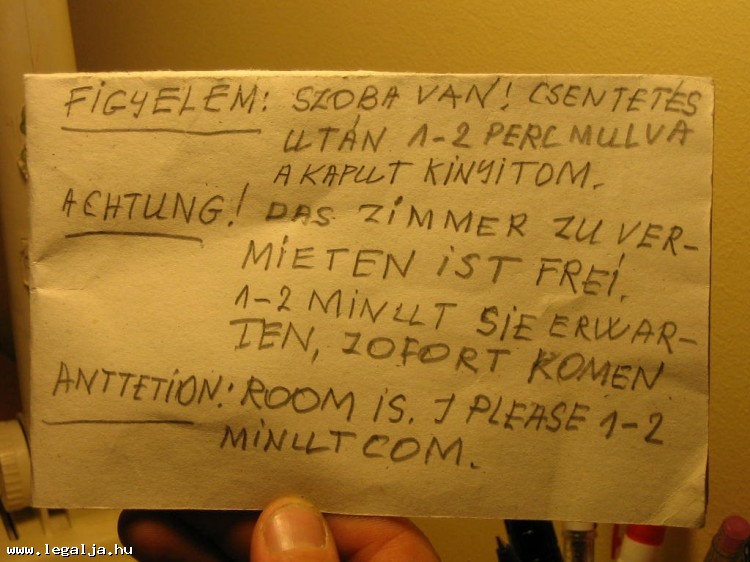 FIGYELEM: SZOBA VAN! CSENTETÉS
UTÁN 1-2 PERC MULVA
A KAPUT KINYITOM.
ACHTUNG! DAS ZIMMER ZU VER-
MIETEN IST FREI.
1-2 MINUT SIE ERWAR-
TEN, ZOFORT KOMEN
ANTTETION: ROOM IS. J PLEASE 1-2
MINUT COM.
www.legalja.hu